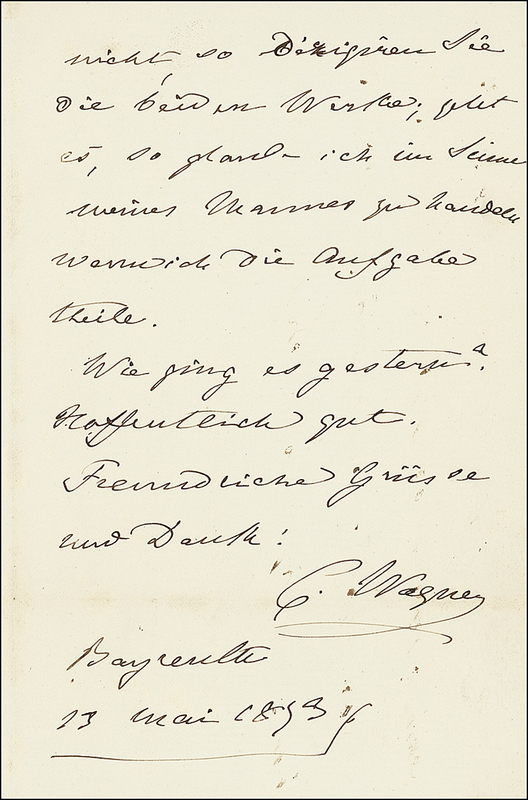 nicht, so dirigiren Sie
die beiden Werke; geht
es, so glaube ich im Sinne
meines Mannes zu handeln
wenn ich die Aufgabe
theile.
Wie ging es gestern?
Hoffentlich gut.
Freundliche Grüsse
und Dank!
C. Wagner
Bayreuth
13 Mai 1893